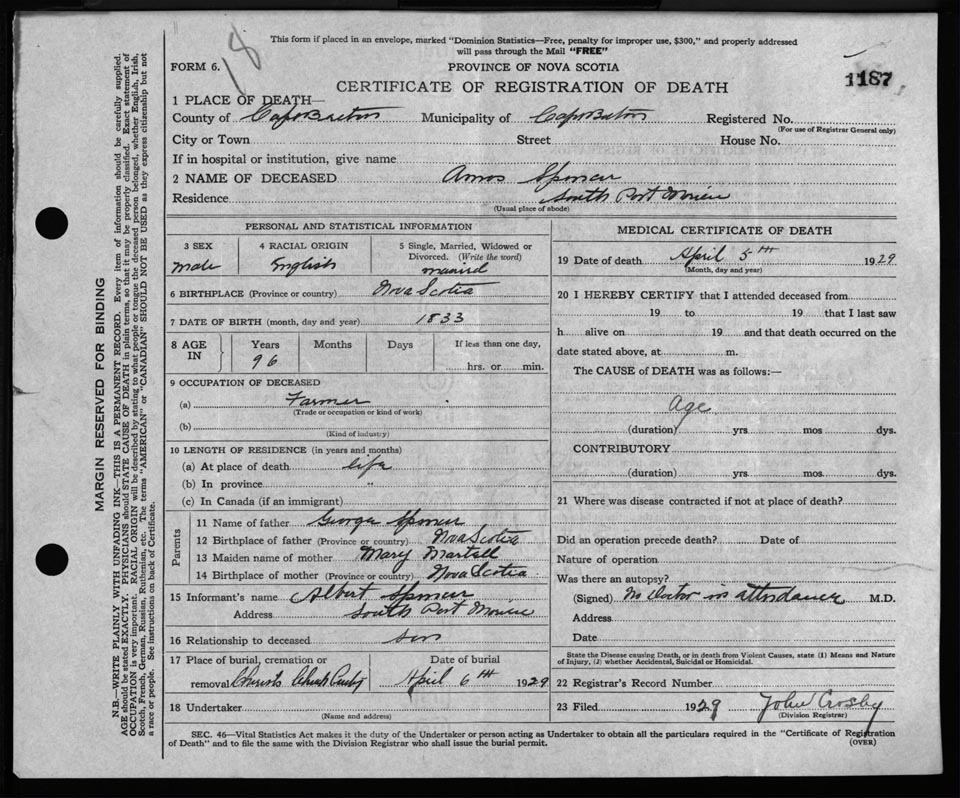 18
This form if placed in an envelope, marked "Dominion Statistics—Free, penalty for improper use, $300," and properly addressed
will pass through the Mail "FREE"
FORM 6.
PROVINCE OF NOVA SCOTIA
1187
CERTIFICATE OF REGISTRATION OF DEATH
1 PLACE OF DEATH—
County of Cape Breton Municipality of Cape Breton Registered No.
(For use of Registrar General only)
City or Town Street House No.
If in hospital or institution, give name
2 NAME OF DECEASED Amos Spencer
Residence South Port Morien
(Usual place of abode)
PERSONAL AND STATISTICAL INFORMATION
3 SEX 4 RACIAL ORIGIN 5 Single, Married, Widowed or
Divorced. (Write the word)
male English married
6 BIRTHPLACE (Province or country) Nova Scotia
7 DATE OF BIRTH (month, day and year) 1833
8 AGE IN Years Months Days If less than one day,
96 hrs. or min.
9 OCCUPATION OF DECEASED
(a) Farmer
(Trade or occupation or kind of work)
(b)
(Kind of industry)
10 LENGTH OF RESIDENCE (in years and months)
(a) At place of death life
(b) In province "
(c) In Canada (if an immigrant)
Parents
11 Name of father George Spencer
12 Birthplace of father (Province or country) Nova Scotia
13 Maiden name of mother Mary Martell
14 Birthplace of mother (Province or country) Nova Scotia
15 Informant's name Albert Spencer
Address South Port Morien
16 Relationship to deceased son
17 Place of burial, cremation or Date of burial
removal Christs Church April 6TH 1929
18 Undertaker
(Name and address)
MEDICAL CERTIFICATE OF DEATH
19 Date of death April 5TH 1929
(Month, day and year)
20 I HEREBY CERTIFY that I attended deceased from
19 to 19 that I last saw
h alive on 19 and that death occurred on the
date stated above, at m.
The CAUSE of DEATH was as follows:—
Age
(duration) yrs mos dys.
CONTRIBUTORY
(duration) yrs mos dys.
21 Where was disease contracted if not at place of death?
Did an operation precede death? Date of
Nature of operation
Was there an autopsy?
(Signed) No Doctor in attendance M.D.
Address
Date
State the Disease causing Death, or in death from Violent Causes, state (1) Means and Nature
of Injury, (2) whether Accidental, Suicidal or Homicidal.
22 Registrar's Record Number
23 Filed 1929 John Crosby
(Division Registrar)
SEC. 46—Vital Statistics Act makes it the duty of the Undertaker or person acting as Undertaker to obtain all the particulars required in the "Certificate of Registration
of Death" and to file the same with the Division Registrar who shall issue the burial permit.
(OVER)
MARGIN RESERVED FOR BINDING
N.B.—WRITE PLAINLY WITH UNFADING INK—THIS IS A PERMANENT RECORD. Every item of information should be carefully supplied.
AGE should be stated EXACTLY. PHYSICIANS should STATE CAUSE OF DEATH in plain terms, so that it may be properly classified. Exact statement of
OCCUPATION is very important. RACIAL ORIGIN will be described by stating to what people or tongue the deceased person belonged, whether English, Irish,
Scotch, French, German, Russian, Ruthenian, etc. The terms "AMERICAN" or "CANADIAN" SHOULD NOT BE USED as they express citizenship but not
a race or people. See instructions on back of Certificate.